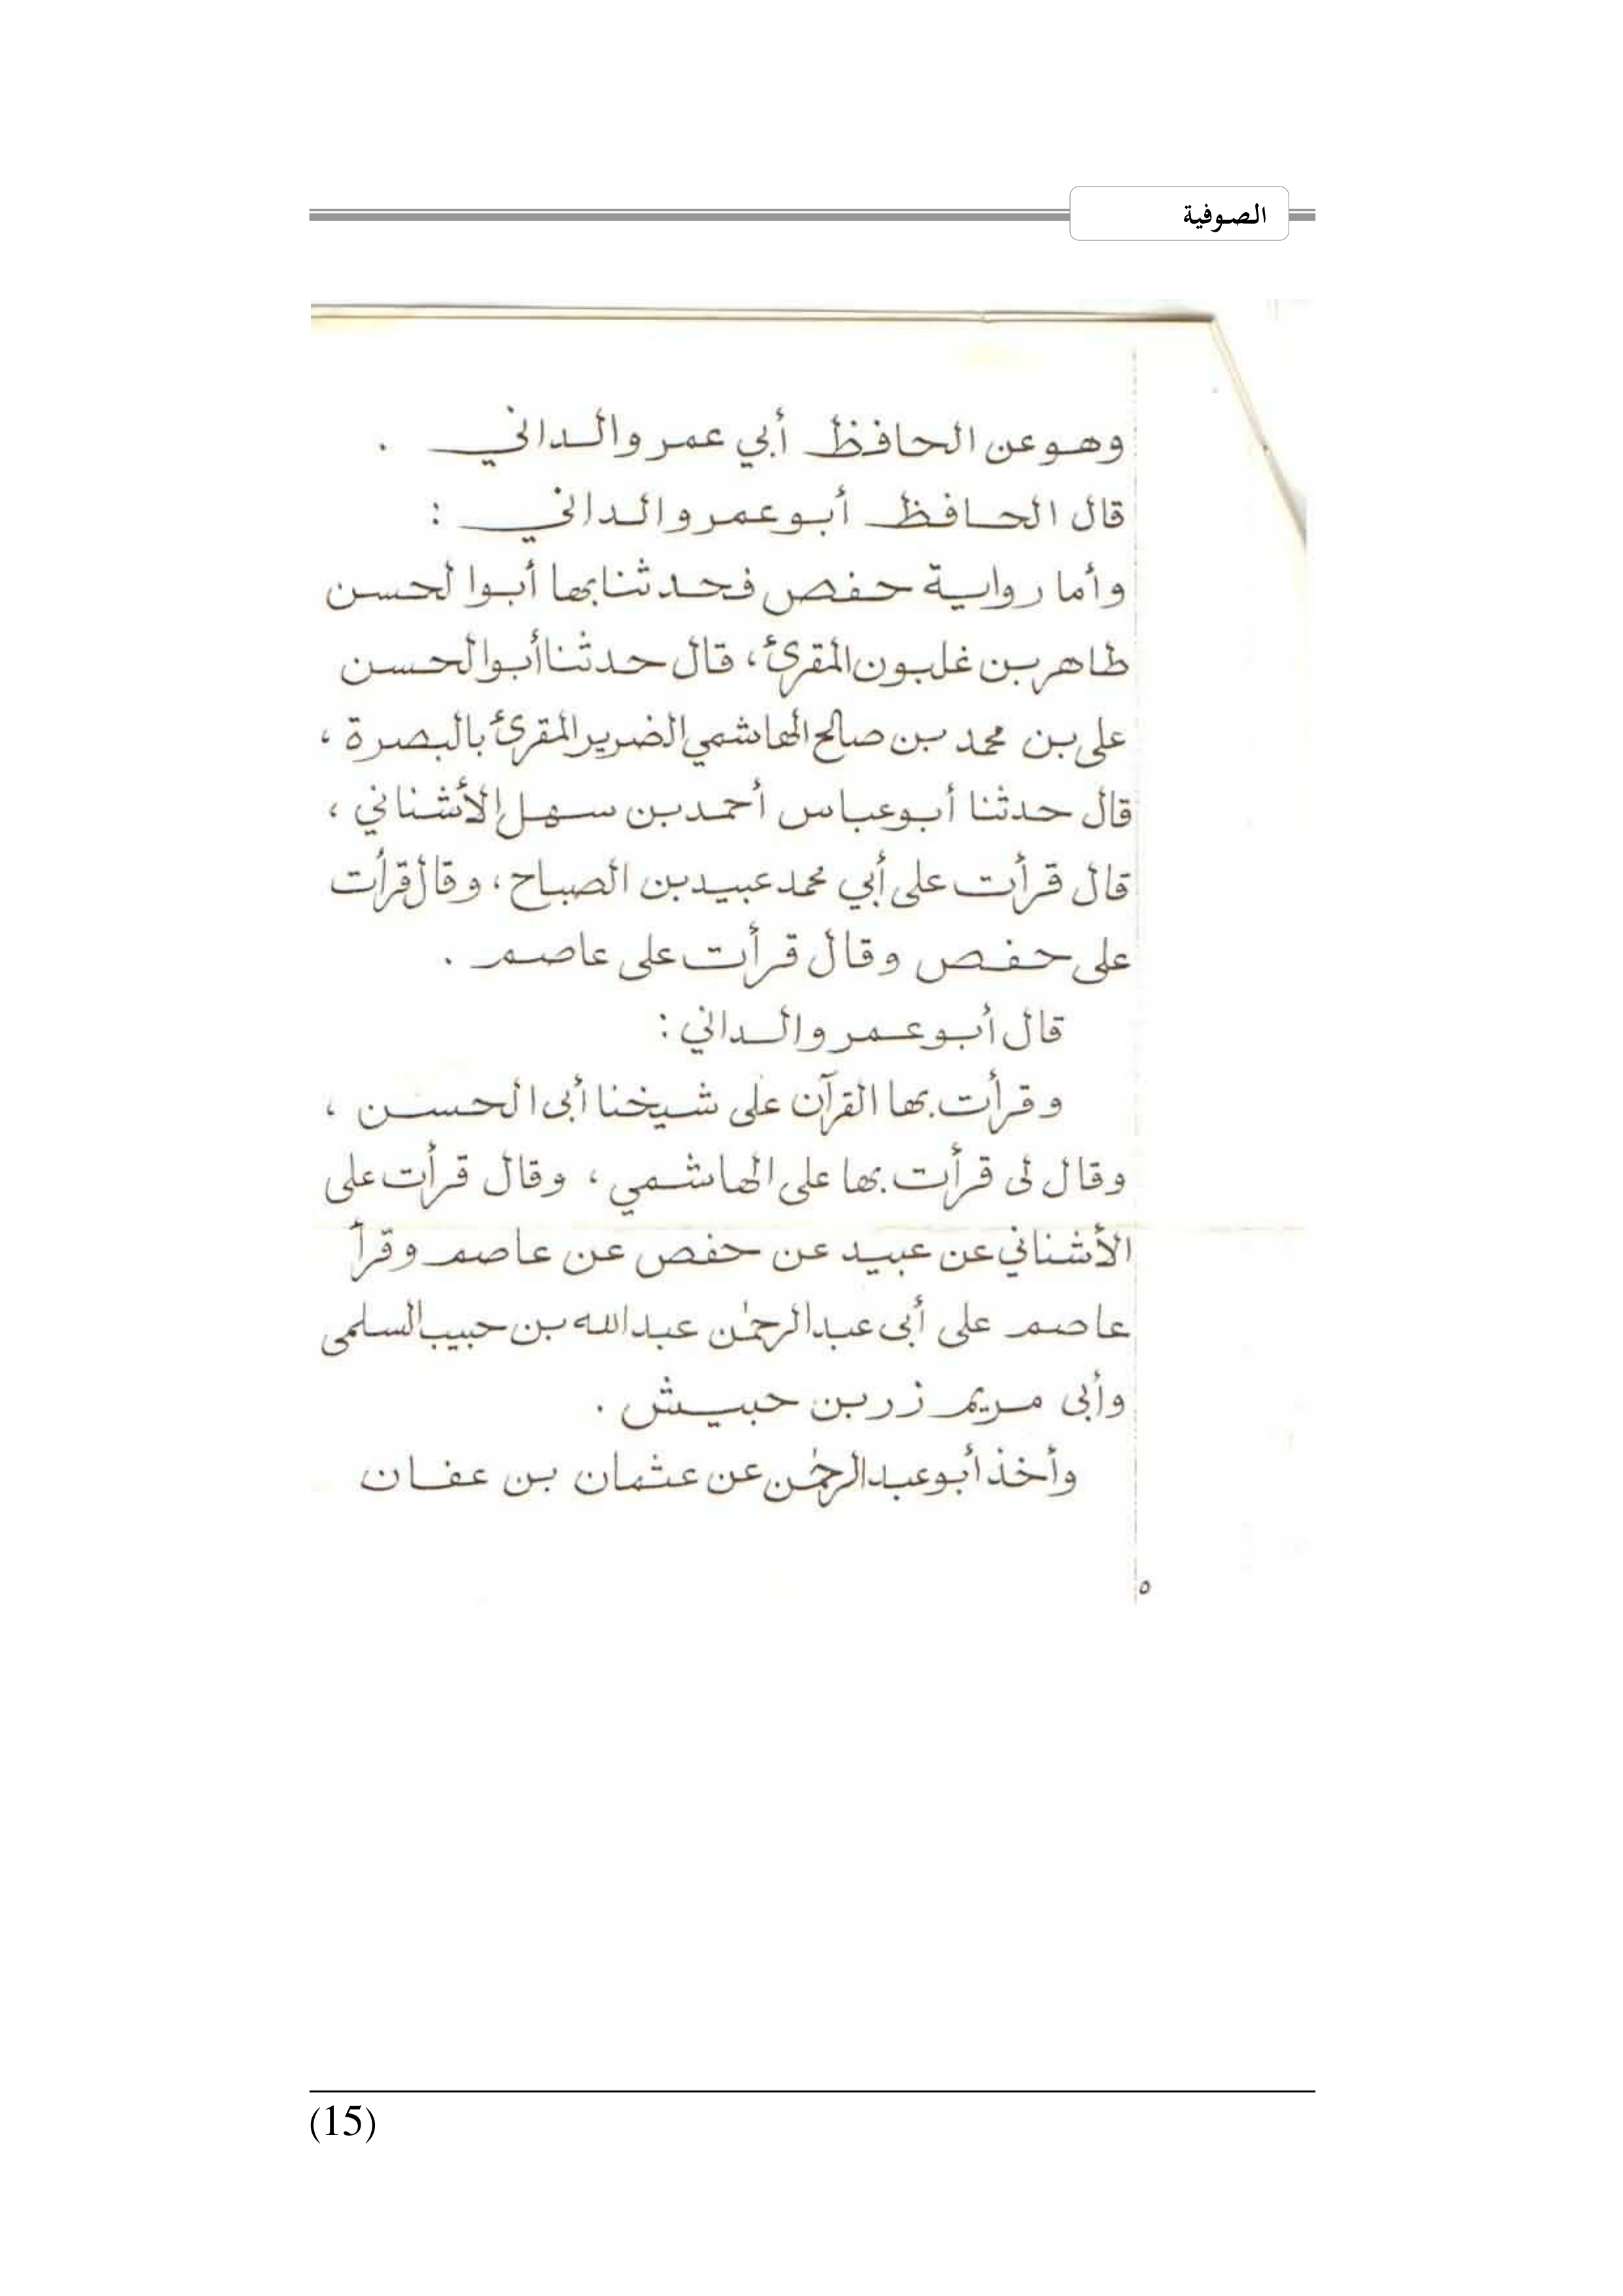 الصوفية
وهو عن الحافظ أبي عمرو الداني .
قال الحافظ أبو عمرو الداني :
وأما رواية حفص فحدثنا بها أبوا لحسن
طاهر بن غلبون المقرئ ، قال حدثنا أبوالحسن
على بن محمد بن صالح الهاشمي الضرير المقرئ بالبصرة ،
قال حدثنا أبو عباس أحمد بن سهل الأشناني ،
قال قرأت على أبي محمد عبيد بن الصباح ، وقال قرأت
على حفص وقال قرأت على عاصم .
قال أبو عمرو الداني :
وقرأت بها القرآن على شيخنا أبى الحسن ،
وقال لى قرأت بها على الهاشمي ، وقال قرأت على
الأشناني عن عبيد عن حفص عن عاصم وقرأ
عاصم على أبى عبد الرحمٰن عبد الله بن حبيب السلمى
وأبى مريم زر بن حبيش .
وأخذ أبو عبد الرحمٰن عن عثمان بن عفان
٥
(15)